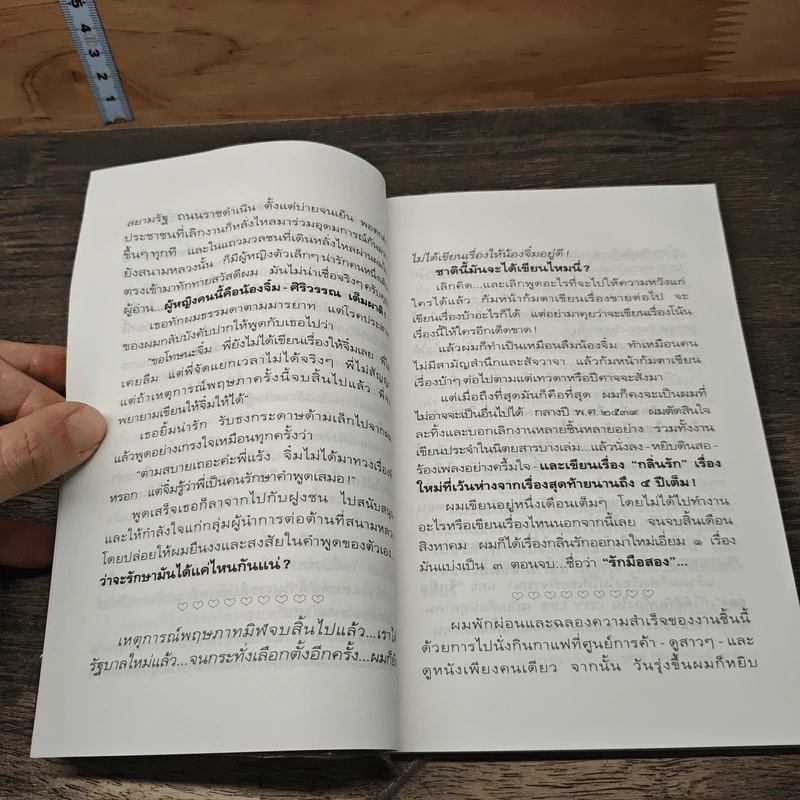 5
4
3
2
1
สยามรัฐ ถนนราชดำเนิน ตั้งแต่บ่ายจนเย็น
ประชาชนที่เลิกงานก็หลั่งไหลมาร่วมอุดมการณ์กัน
ขึ้นๆ ทุกที และในแถวมวลชนที่เดินหลั่งไหลผ่าน
ยังสนามหลวงนั้น ก็มีผู้หญิงตัวเล็กๆ น่ารักคนหนึ่ง
ตรงเข้ามาทักทายสวัสดีผม มันไม่น่าเชื่อจริงๆ
ผู้อ่าน...ผู้หญิงคนนี้คือน้องจิ๋ม - ศิริวรรณ เต็มผาติ!
เธอทักผมธรรมดาตามมารยาท แต่โรคประสาท
ของผมกลับบังคับปากให้พูดกับเธอไปว่า
"ขอโทษนะจิ๋ม พี่ยังไม่ได้เขียนเรื่องให้จิ๋มเลย
เคยลืม แต่พี่จัดแยกเวลาไม่ได้จริงๆ พี่ไม่สัญญา
แต่ถ้าเหตุการณ์พฤษภาครั้งนี้จบสิ้นไปแล้ว
พยายามเขียนให้จิ๋มให้ได้"
เธอยิ้มน่ารัก รับธงกระดาษด้ามเล็กไปจาก
แล้วพูดอย่างเกรงใจเหมือนทุกครั้งว่า
"ตามสบายเถอะค่ะพี่แร้ง จิ๋มไม่ได้มาทวงเรื่อง
หรอก แต่จิ๋มรู้ว่าพี่เป็นคนรักษาคำพูดเสมอ!"
พูดเสร็จเธอก็ลาจากไปกับฝูงชน ไปสนับสนุน
และให้กำลังใจแก่กลุ่มผู้นำการต่อต้านที่สนามหลวง
โดยปล่อยให้ผมยืนงงและสงสัยในคำพูดของตัวเอง
ว่าจะรักษามันได้แค่ไหนกันแน่?
♡♡♡♡♡♡♡♡♡♡
เหตุการณ์พฤษภาทมิฬจบสิ้นไปแล้ว...เราได้
รัฐบาลใหม่แล้ว...จนกระทั่งเลือกตั้งอีกครั้ง...ผมก็ยัง
ไม่ได้เขียนเรื่องให้น้องจิ๋มอยู่ดี!
ชาตินี้มันจะได้เขียนไหมนี่?
เลิกคิด...และเลิกพูดอะไรที่จะไปให้ความหวังแก่
ใครได้แล้ว ก้มหน้าก้มตาเขียนเรื่องขายต่อไป จะ
เขียนเรื่องบ้าอะไรก็ได้ แต่อย่ามาคุยว่าจะเขียนเรื่องโน้น
เรื่องนี้ให้ใครอีกเด็ดขาด!
แล้วผมก็ทำเป็นเหมือนลืมน้องจิ๋ม ทำเหมือนคน
ไม่มีสามัญสำนึกและสัจวาจา แล้วก้มหน้าก้มตาเขียน
เรื่องบ้าๆ ต่อไปตามแต่เทวดาหรือปีศาจจะสั่งมา
แต่เมื่อถึงที่สุดมันก็คือที่สุด ผมก็คงจะเป็นผมที่
ไม่อาจจะเป็นอื่นไปได้ กลางปี พ.ศ.๒๕๓๙ ผมตัดสินใจ
ละทิ้งและบอกเลิกงานหลายชิ้นหลายอย่าง รวมทั้งงาน
เขียนประจำในนิตยสารบางเล่ม...แล้วนั่งลง - หยิบดินสอ -
ร้องเพลงอย่างครึ้มใจ - และเขียนเรื่อง "กลิ่นรัก" เรื่อง
ใหม่ที่เว้นห่างจากเรื่องสุดท้ายนานถึง ๕ ปีเต็ม!
ผมเขียนอยู่หนึ่งเดือนเต็มๆ โดยไม่ได้ไปทำงาน
อะไรหรือเขียนเรื่องไหนนอกจากนี้เลย จนจบสิ้นเดือน
สิงหาคม ผมก็ได้เรื่องกลิ่นรักออกมาใหม่เอี่ยม ๑ เรื่อง
มันแบ่งเป็น ๓ ตอนจบ...ชื่อว่า "รักมือสอง"...
♡♡♡♡♡♡♡♡♡♡
ผมพักผ่อนและฉลองความสำเร็จของงานชิ้นนี้
ด้วยการไปนั่งกินกาแฟที่ศูนย์การค้า - ดูสาวๆ - และ
ดูหนังเพียงคนเดียว จากนั้น วันรุ่งขึ้นผมก็หยิบ